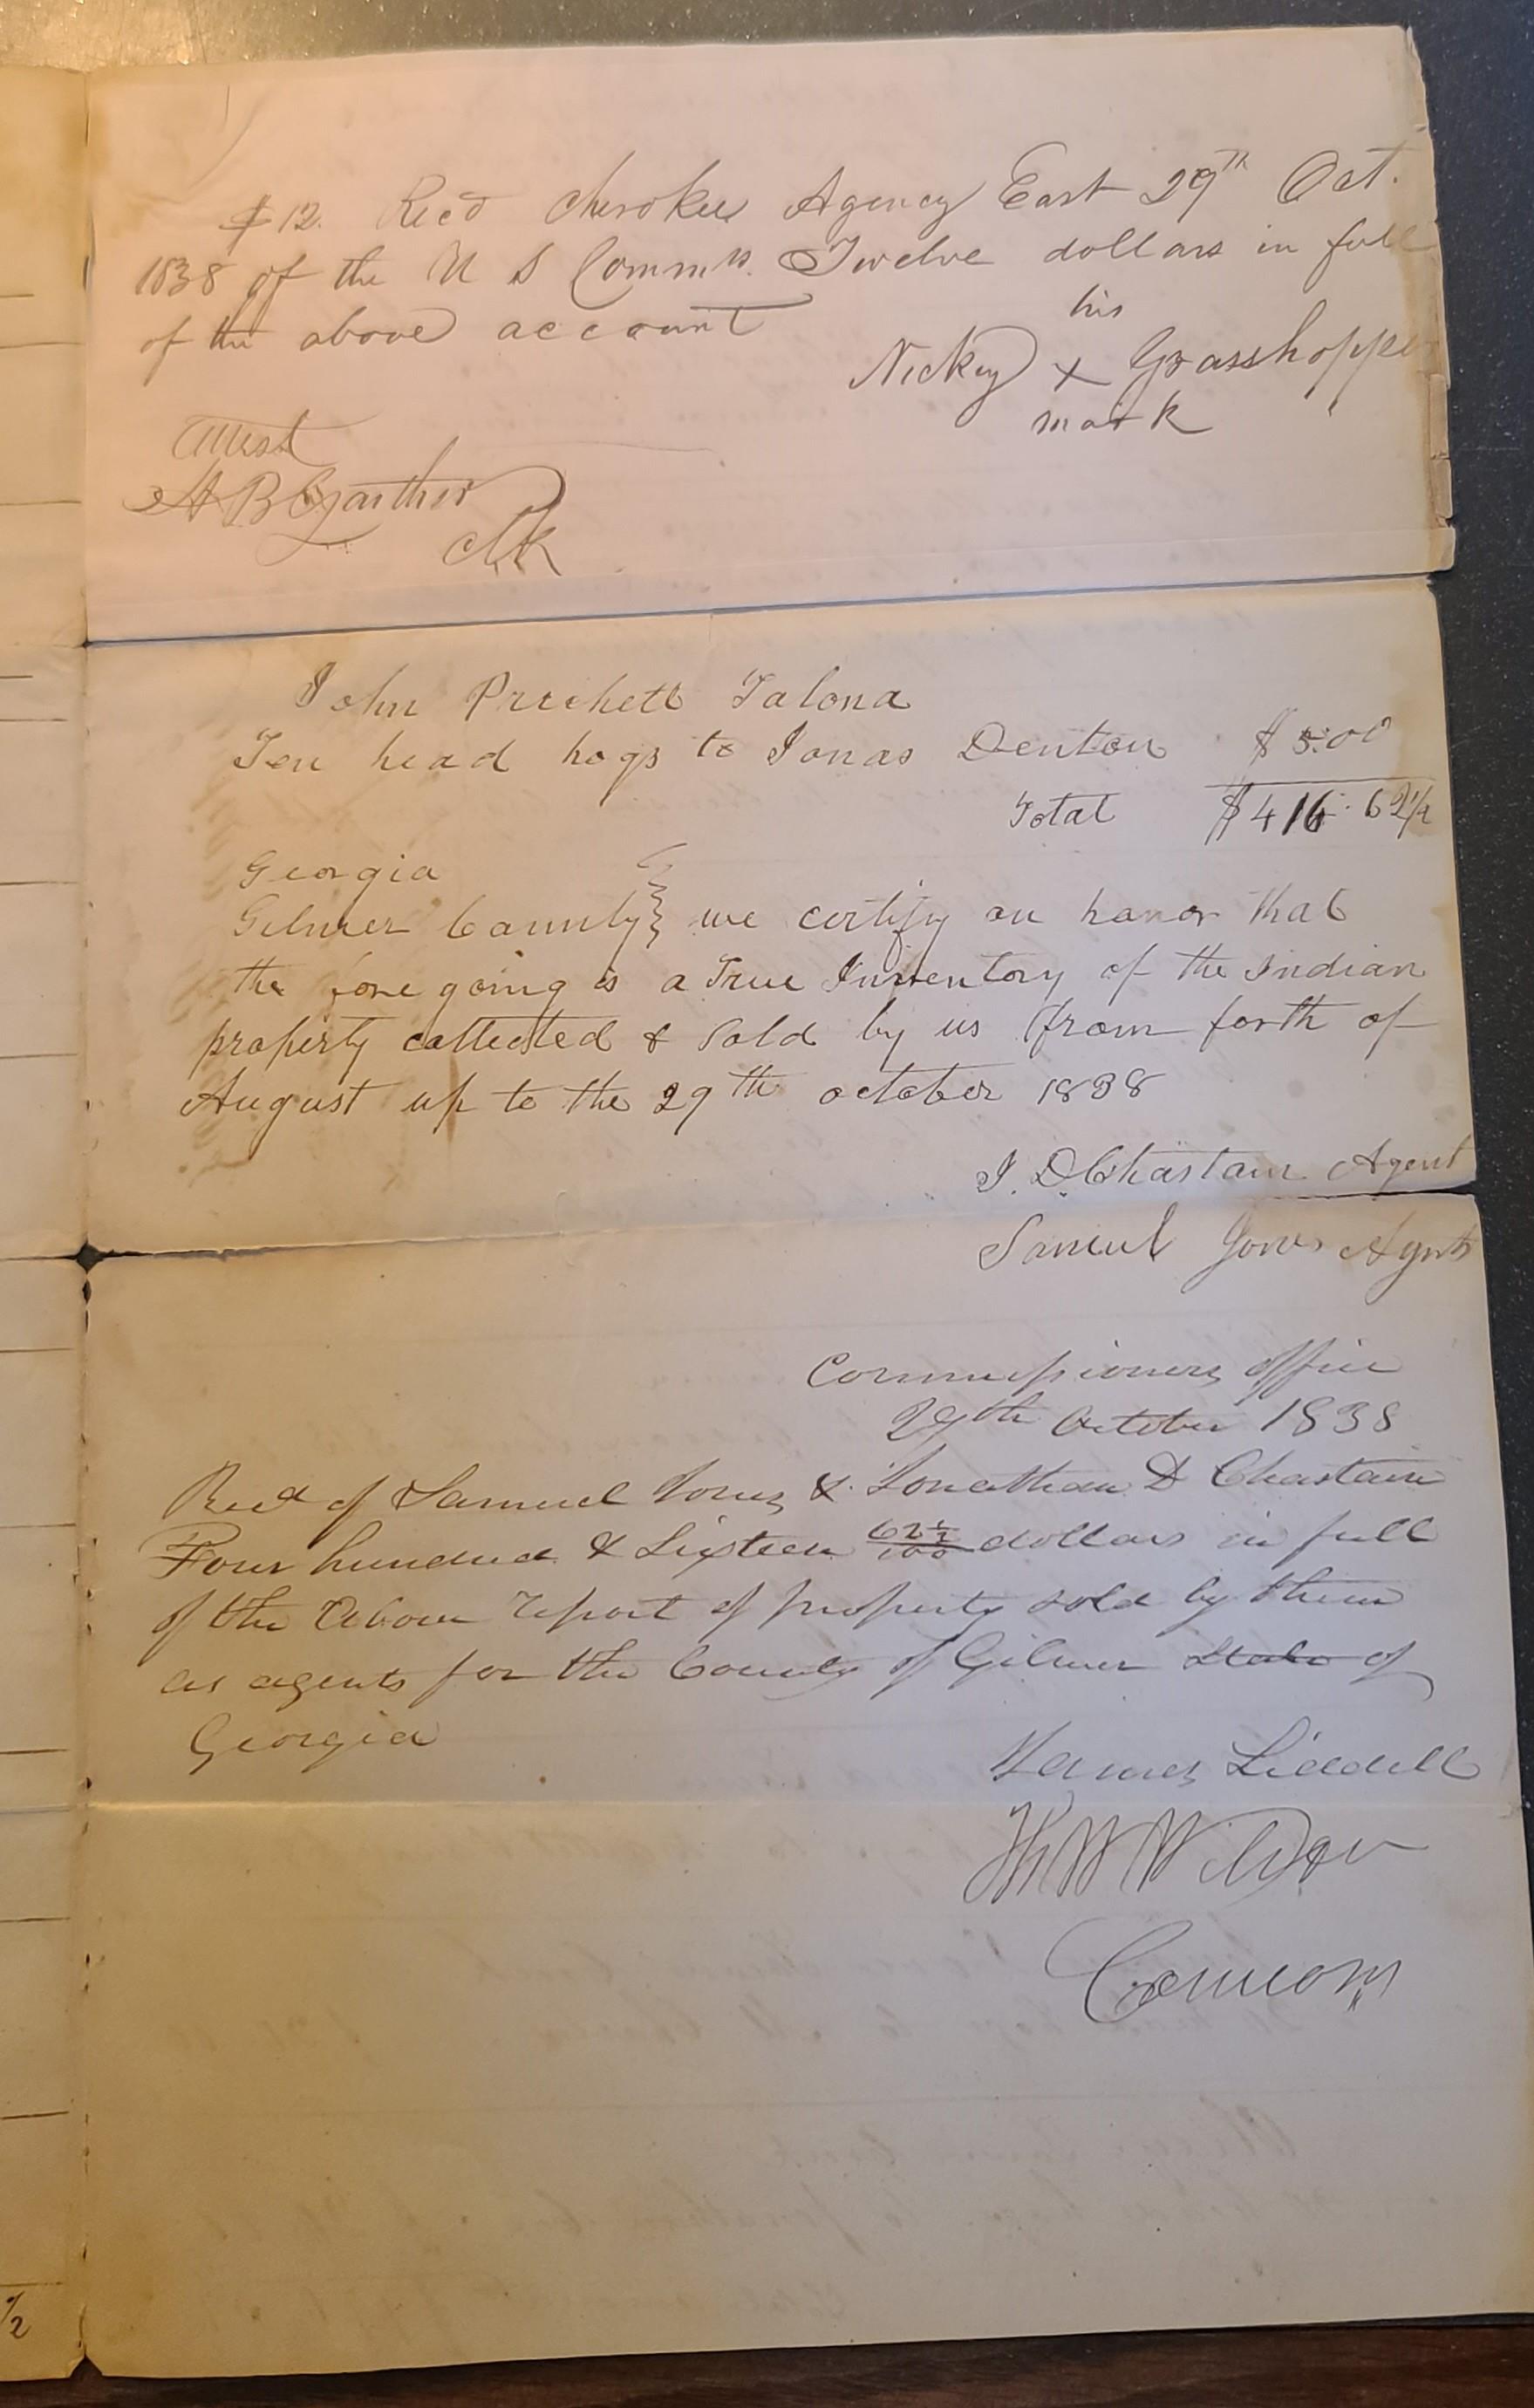 $12. Recd Cherokee Agency East 29th Oct.
1838 of the U S Commrs. Twelve dollars in full
of the above account
his
Nickey x Grasshopper
mark
Attest
Clk
John Prichett Talona
Ten head hogs to Jonas Denton $5.00
Total $416.62 1/2
Georgia
Gilmer County } we certify on honor that
the fore going is a True Inventory of the Indian
property collected & Sold by us from forth of
August up to the 29th october 1838
J. D Chastain Agent
Samuel Jones Agents
Commissioners office
29th October 1838
Recd of Samuel Jones & Jonathan D Chastain
Four hundred & Sixteen 62 1/2/100 dollars in full
of the above report of property sold by them
as agents for the County of Gilmer State of
Georgia
James Liddell
Comrs
1/2